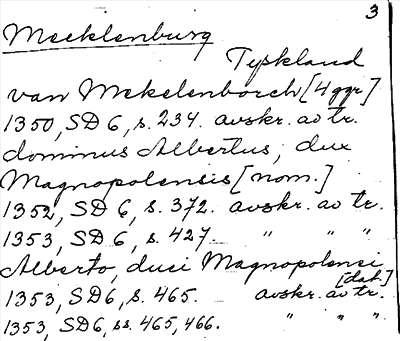 3
Mecklenburg
Tyskland
van Mekelenborch [4 ggr]
1350, SD 6, s. 234. avskr. av tr.
dominus Albertus, dux
Magnopolensis [nom.]
1352, SD 6, s. 372. avskr. av tr.
1353, SD 6, s. 427. " " "
Alberto, duci Magnopolensi
[dat.]
1353, SD6, s. 465. avskr. av tr.
1353, SD6, ss. 465, 466. " " "